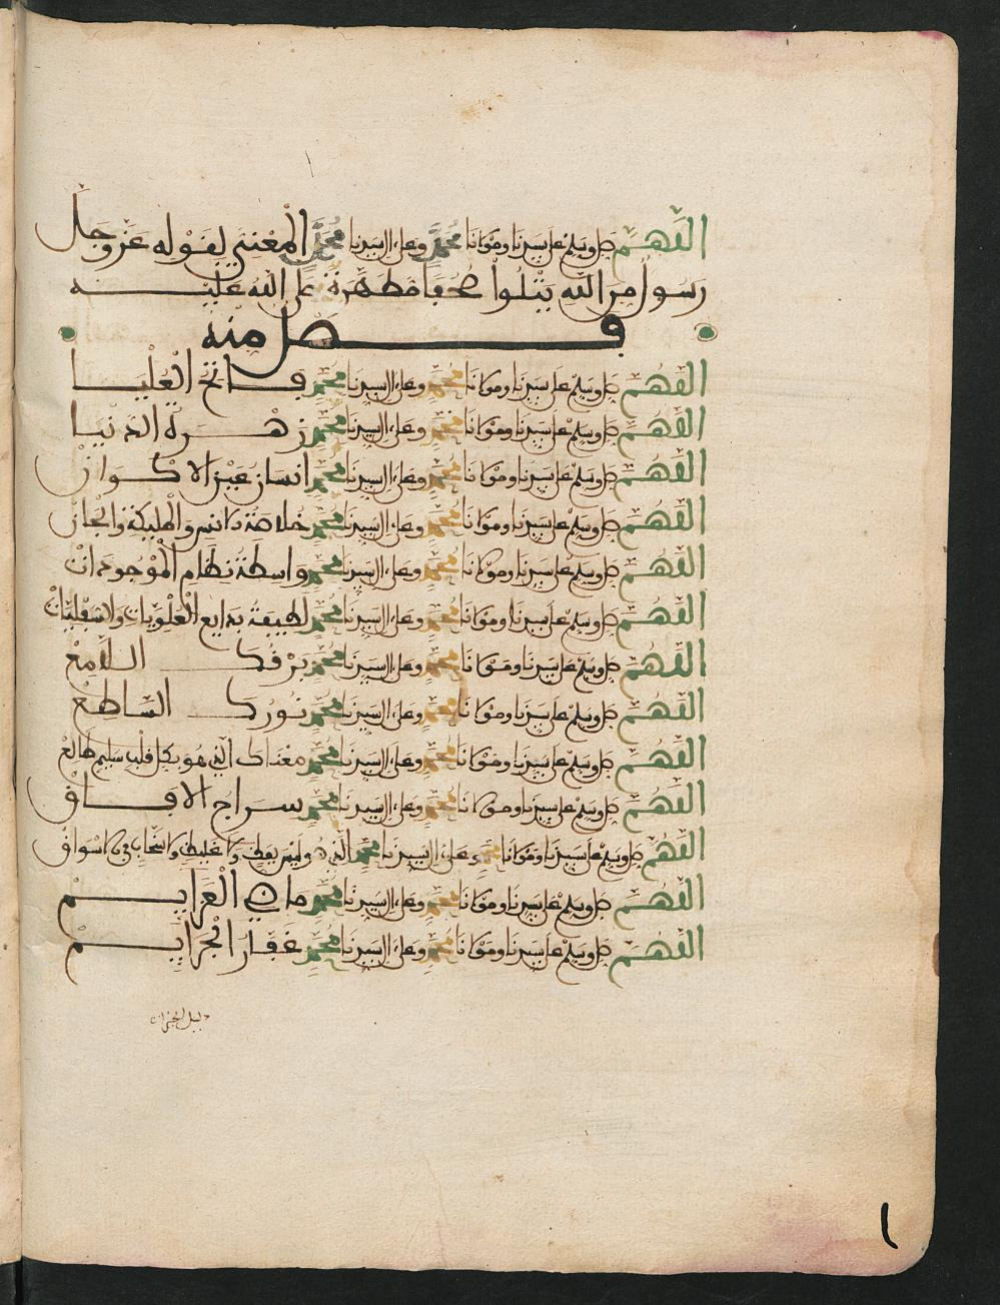 اللهم صل وسلم على سيدنا ومولانا محمد وعلى ال سيدنا محمد المعني لقوله عز وجل
رسول من الله يتلوا صحفا مطهرة صلى الله عليه
فصل منه
اللهم صل وسلم على سيدنا ومولانا محمد وعلى ال سيدنا محمد فاتح العليا
اللهم صل وسلم على سيدنا ومولانا محمد وعلى ال سيدنا محمد زهرة الدنيا
اللهم صل وسلم على سيدنا ومولانا محمد وعلى ال سيدنا محمد انسان عين الاكوان
اللهم صل وسلم على سيدنا ومولانا محمد وعلى ال سيدنا محمد خلاصة الانس والمليكة والجان
اللهم صل وسلم على سيدنا ومولانا محمد وعلى ال سيدنا محمد واسطة نظام الموجودات
اللهم صل وسلم على سيدنا ومولانا محمد وعلى ال سيدنا محمد لطيفة بدايع العلويات والسفليات
اللهم صل وسلم على سيدنا ومولانا محمد وعلى ال سيدنا محمد برقك اللامع
اللهم صل وسلم على سيدنا ومولانا محمد وعلى ال سيدنا محمد نورك الساطع
اللهم صل وسلم على سيدنا ومولانا محمد وعلى ال سيدنا محمد معناك الذي هو بكل قلب سليم طالع
اللهم صل وسلم على سيدنا ومولانا محمد وعلى ال سيدنا محمد سراج الافاق
اللهم صل وسلم على سيدنا ومولانا محمد وعلى ال سيدنا محمد الذي وليس بفظ ولا غليظ ولا سخاب في الاسواق
اللهم صل وسلم على سيدنا ومولانا محمد وعلى ال سيدنا محمد ماضي العزايم
اللهم صل وسلم على سيدنا ومولانا محمد وعلى ال سيدنا محمد غفار الجرايم